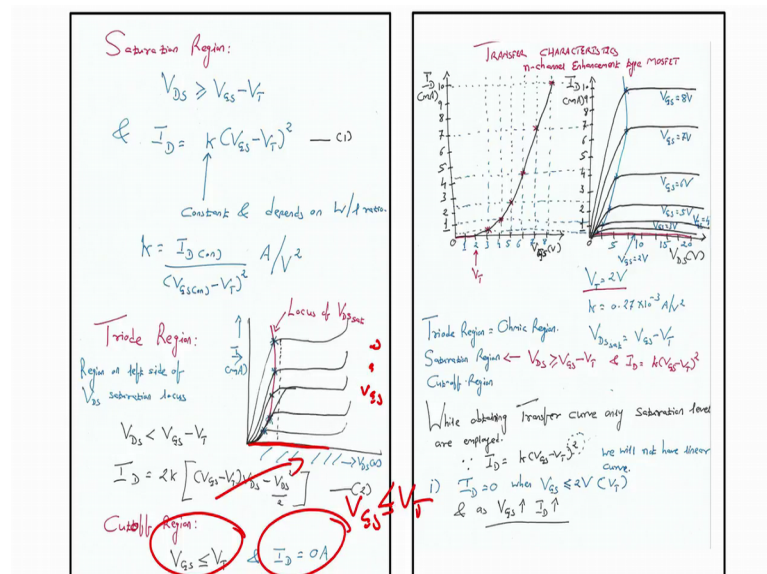 Saturation Region:
V_DS ≥ V_GS - V_T
& I_D = k(V_GS - V_T)² —(1)
Constant & depends on W/l ratio.
k = I_D(on) / (V_GS(on) - V_T)² A/V²
Triode Region:
Region on left side of
V_DS saturation locus
V_DS < V_GS - V_T
I_D = 2k [(V_GS - V_T) V_DS - V_DS²/2] —(2)
Locus of V_DS sat
I_D
(mA)
V_GS
→ V_DS(V)
V_GS ≤ V_T
Cutoff Region:
V_GS ≤ V_T & I_D = 0A
TRANSFER CHARACTERISTICS
n-channel Enhancement type MOSFET
I_D
(mA)
10
9
8
7
6
5
4
3
2
1
0 1 2 3 4 5 6 7 8
V_GS(V)
V_T
I_D
(mA)
10
9
8
7
6
5
4
3
2
1
0 5 10 15 20
V_DS(V)
V_GS=8V
V_GS=7V
V_GS=6V
V_GS=5V
V_GS=4
V_GS=3V
V_GS=2V
V_T = 2V
k = 0.27 × 10⁻³ A/V²
Triode Region = Ohmic Region.
V_DS sat = V_GS - V_T
Saturation Region ← V_DS ≥ V_GS - V_T & I_D = k(V_GS - V_T)²
Cut-off Region
While obtaining Transfer curve only Saturation level
are employed.
∵ I_D = k(V_GS - V_T)² we will not have linear
curve.
i) I_D = 0 when V_GS ≤ 2V (V_T)
& as V_GS ↑ I_D ↑